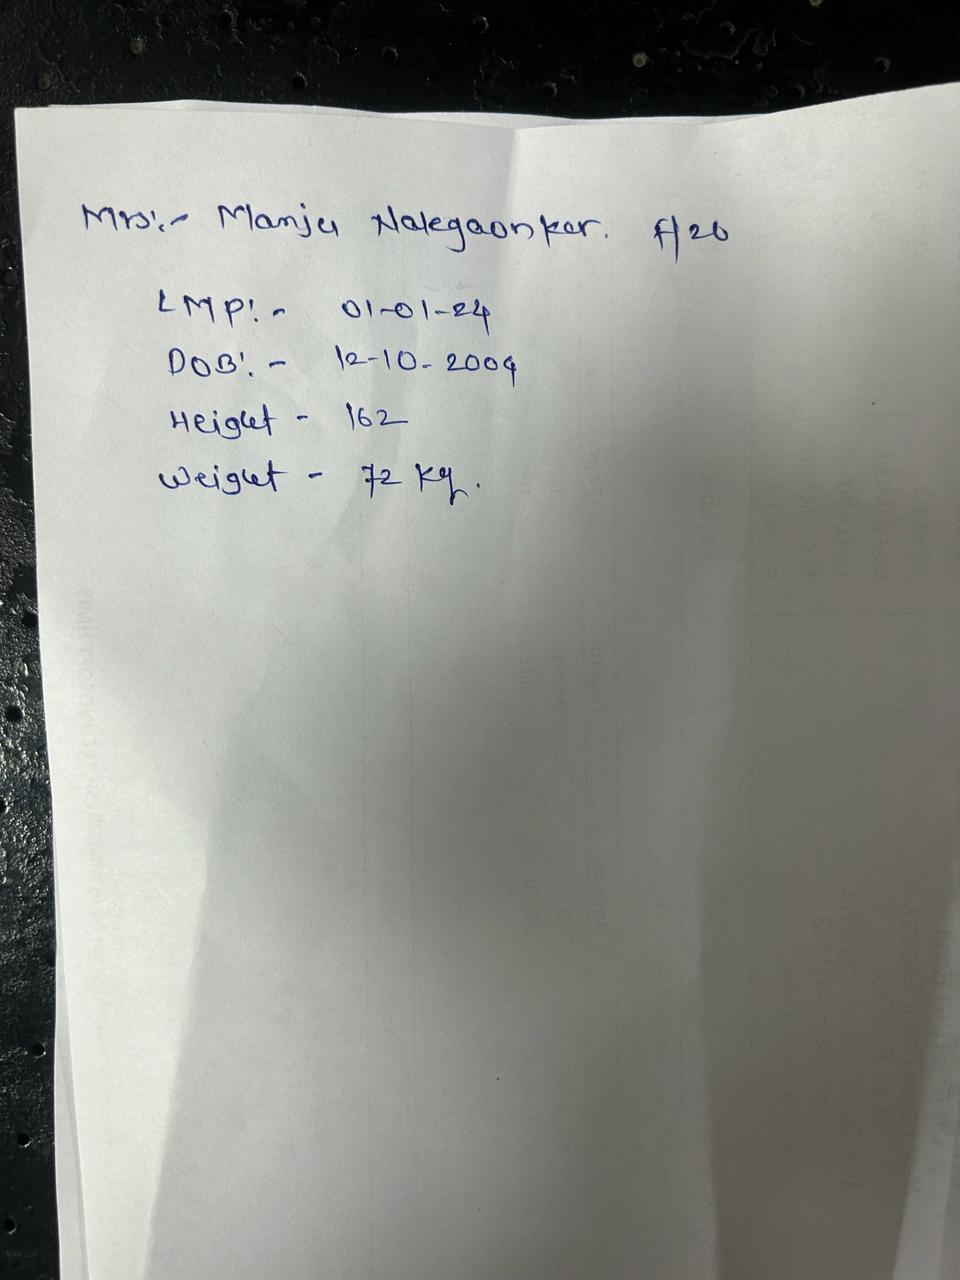 Mrs:- Manju Nalegaonkar. F/20
LMP:- 01-01-24
DOB:- 12-10-2004
Height - 162
Weight - 72 Kg.